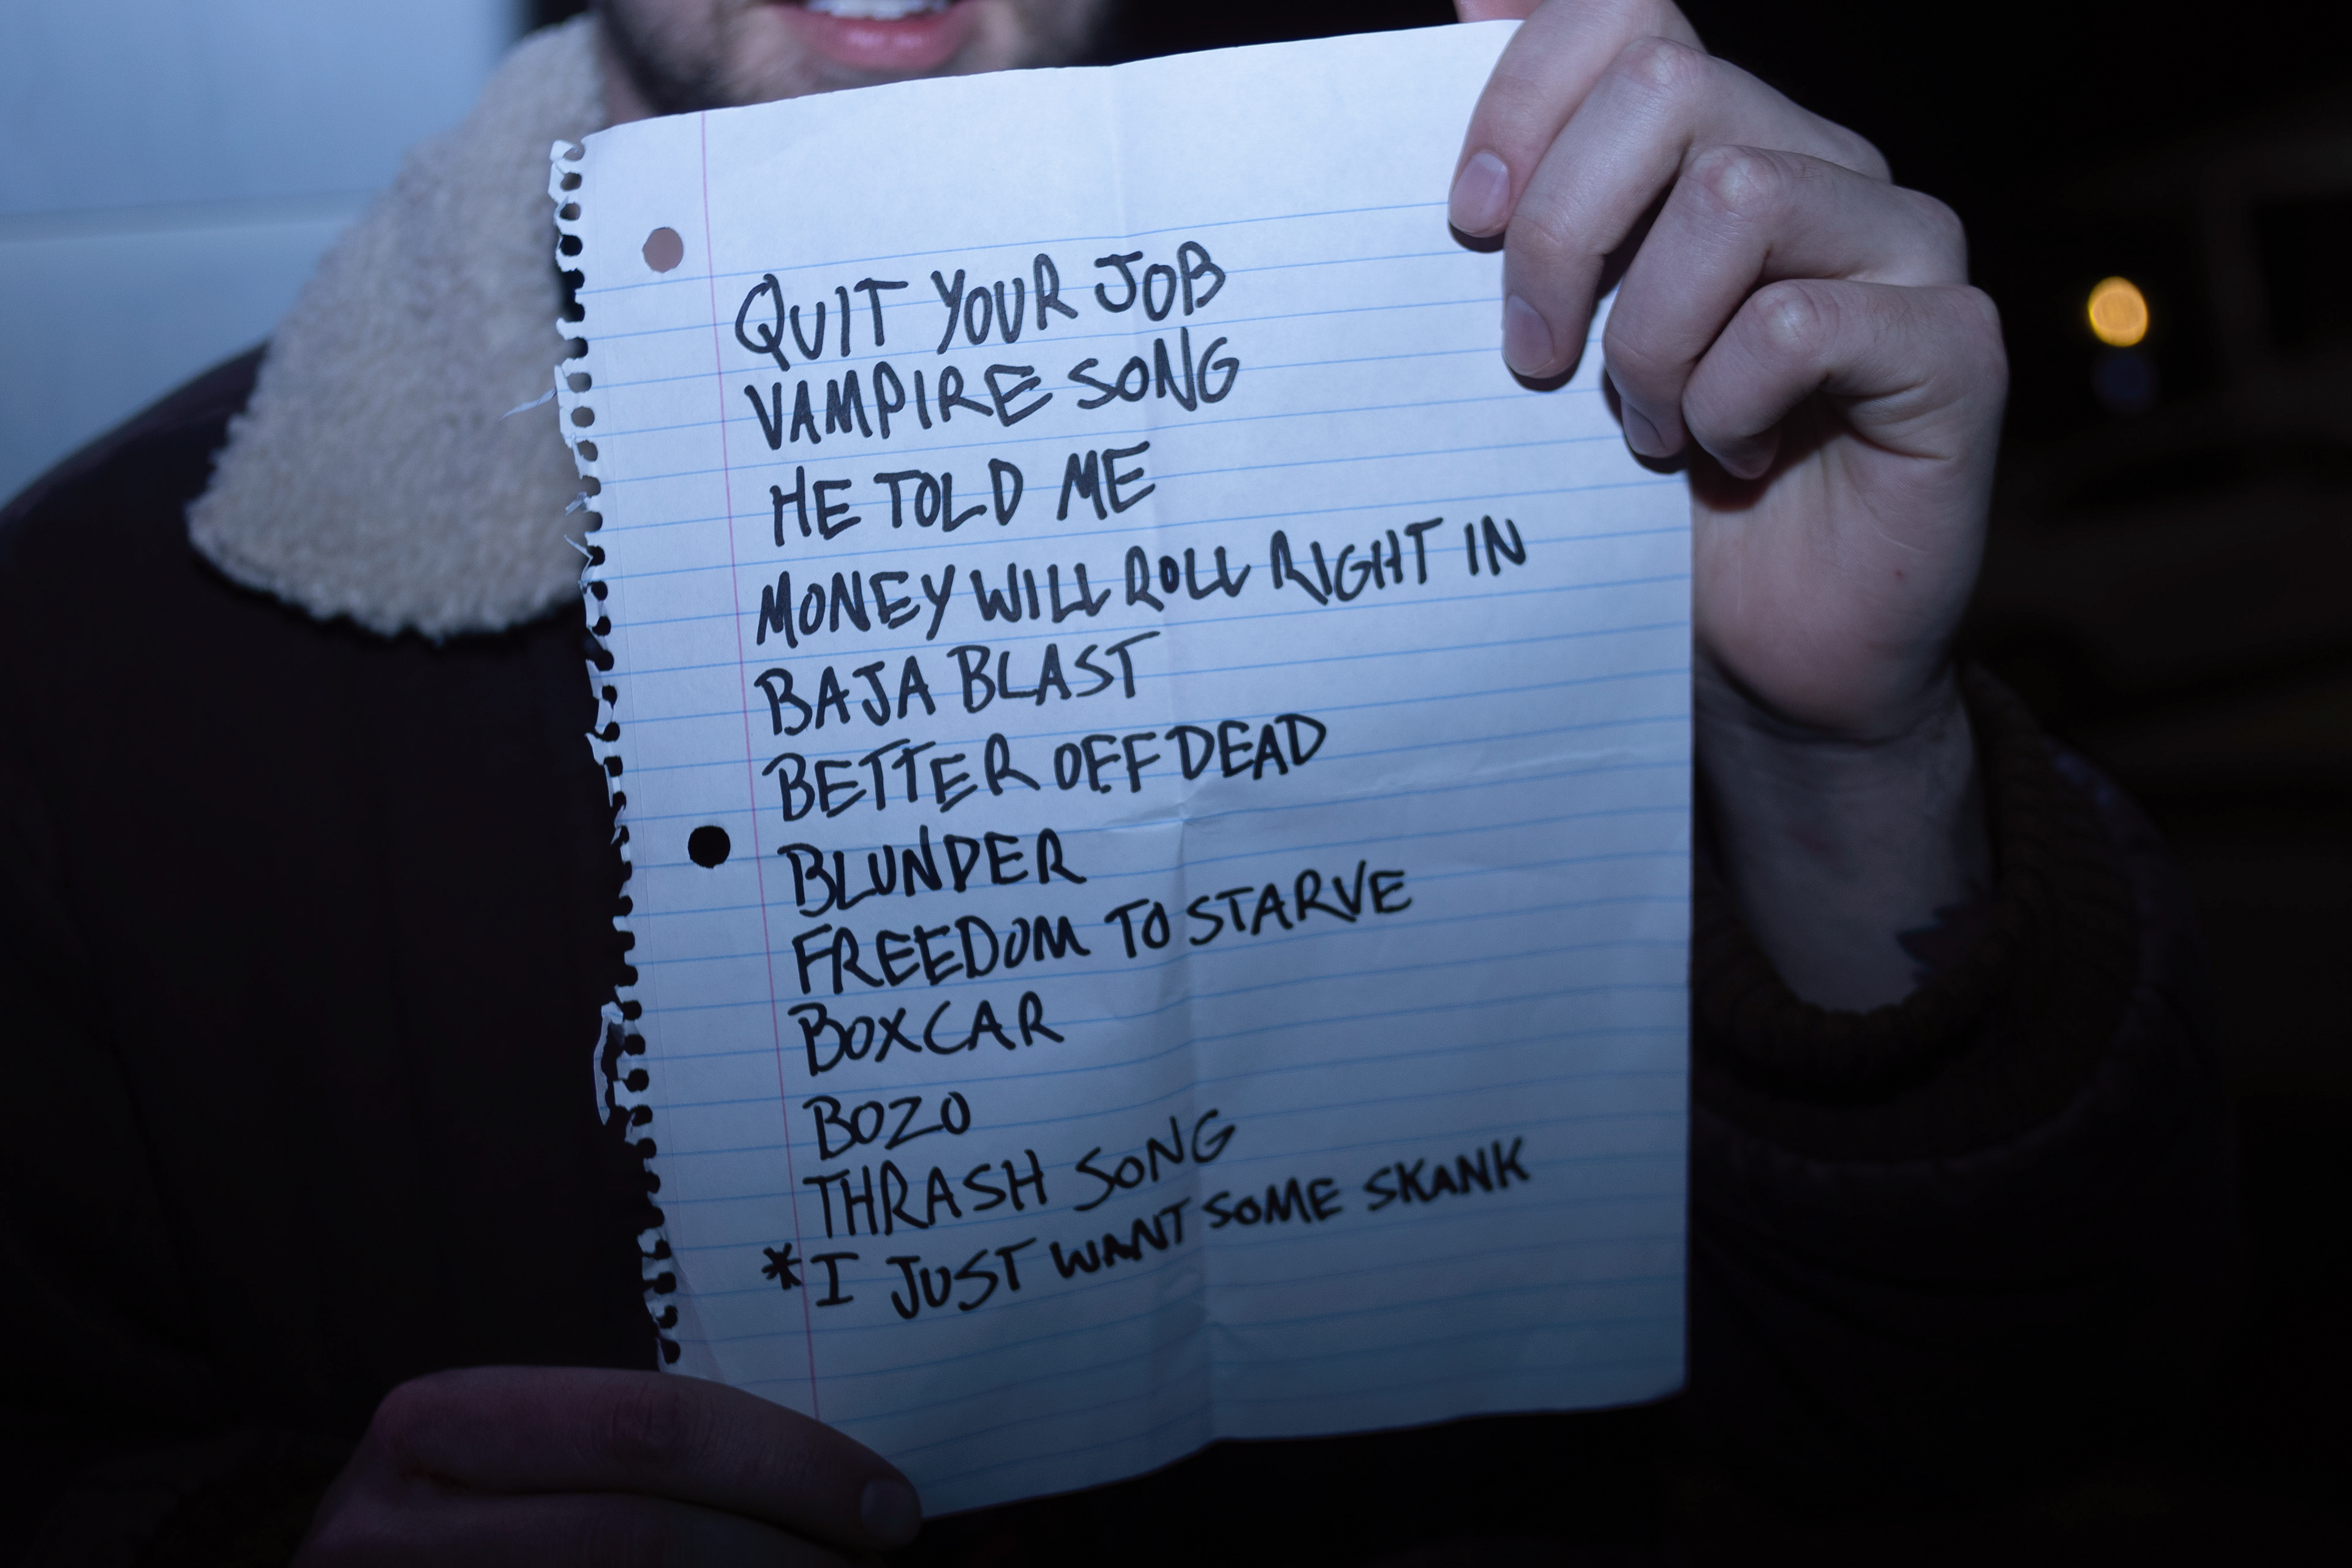 QUIT YOUR JOB
VAMPIRE SONG
HE TOLD ME
MONEY WILL ROLL RIGHT IN
BAJA BLAST
BETTER OFF DEAD
BLUNDER
FREEDOM TO STARVE
BOXCAR
BOZO
THRASH SONG
*I JUST WANT SOME SKANK